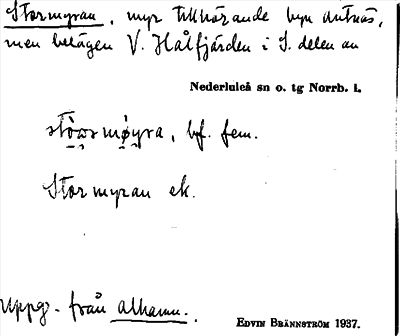 Stormyran, myr tillhörande byn Antnäs,
men belägen V. Hålfjärden i S. delen av
Nederluleå sn o. tg Norrb. l.
bf. fem.
Stormyran ek.
Uppg. från allmänn.
EDVIN BRÄNNSTRÖM 1937.